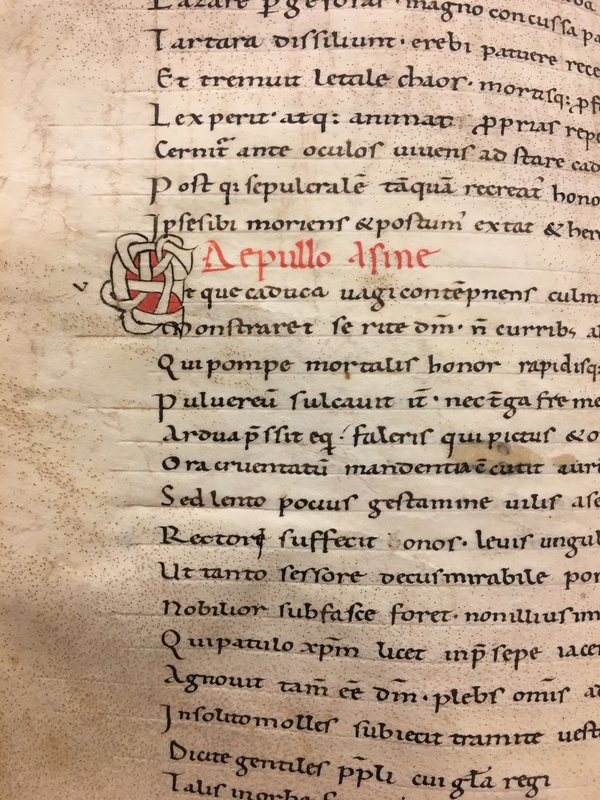 Lazare
magno concussa
Tartara dissiliunt · erebi patuere rece
Et tremuit letale chaos · mortisq;
Lex perit · atq: animas ꝓprias rep
Cernit̄ ante oculos uiuens ad stare cad
Post q; sepulcralē tāquā recreat̄ hono
Ipse sibi moriens & postum̄ extat & her
De pullo Asine
Vt que caduca uagi contēpnens culm
Monstraret se rite dm̄ · n̄ curribꝫ
Qui pompe mortalis honor rapidisq:
Puluereū sulcauit it̄ · nec tḡa
Ardua p̄ssit eq̨ · faleris qui pictus & o
Ora cruentatū mandentia auri
Sed lento pocius gestamine uilis ase
Rectorē suffecit onos · leuis ungul
Ut tanto sessore decus mirabile por
Nobilior subfasce foret · non illius im
Qui patulo xp̄m licet inp̄sepe iacen
Agnouit tam̄ eē dm̄ · plebs om̄is ad
Insolito molles subiecit tramite uest
Dicite gentiles pp̄li cui gl̄a regi
Talis